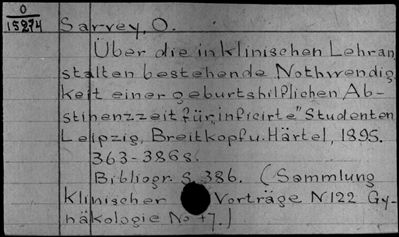 O
15274
Sarvey, O.
Über die in klinischen Lehran
stalten bestehende Nothwendig
keit einer geburtshilflichen Ab-
stinenzzeit für „inficirte" Studenten
Leipzig, Breitkopf u. Härtel, 1895.
363-386 s.
Bibliogr. S. 386. (Sammlung
Klinischer Vorträge N 122 Gy-
näkologie No 47.)